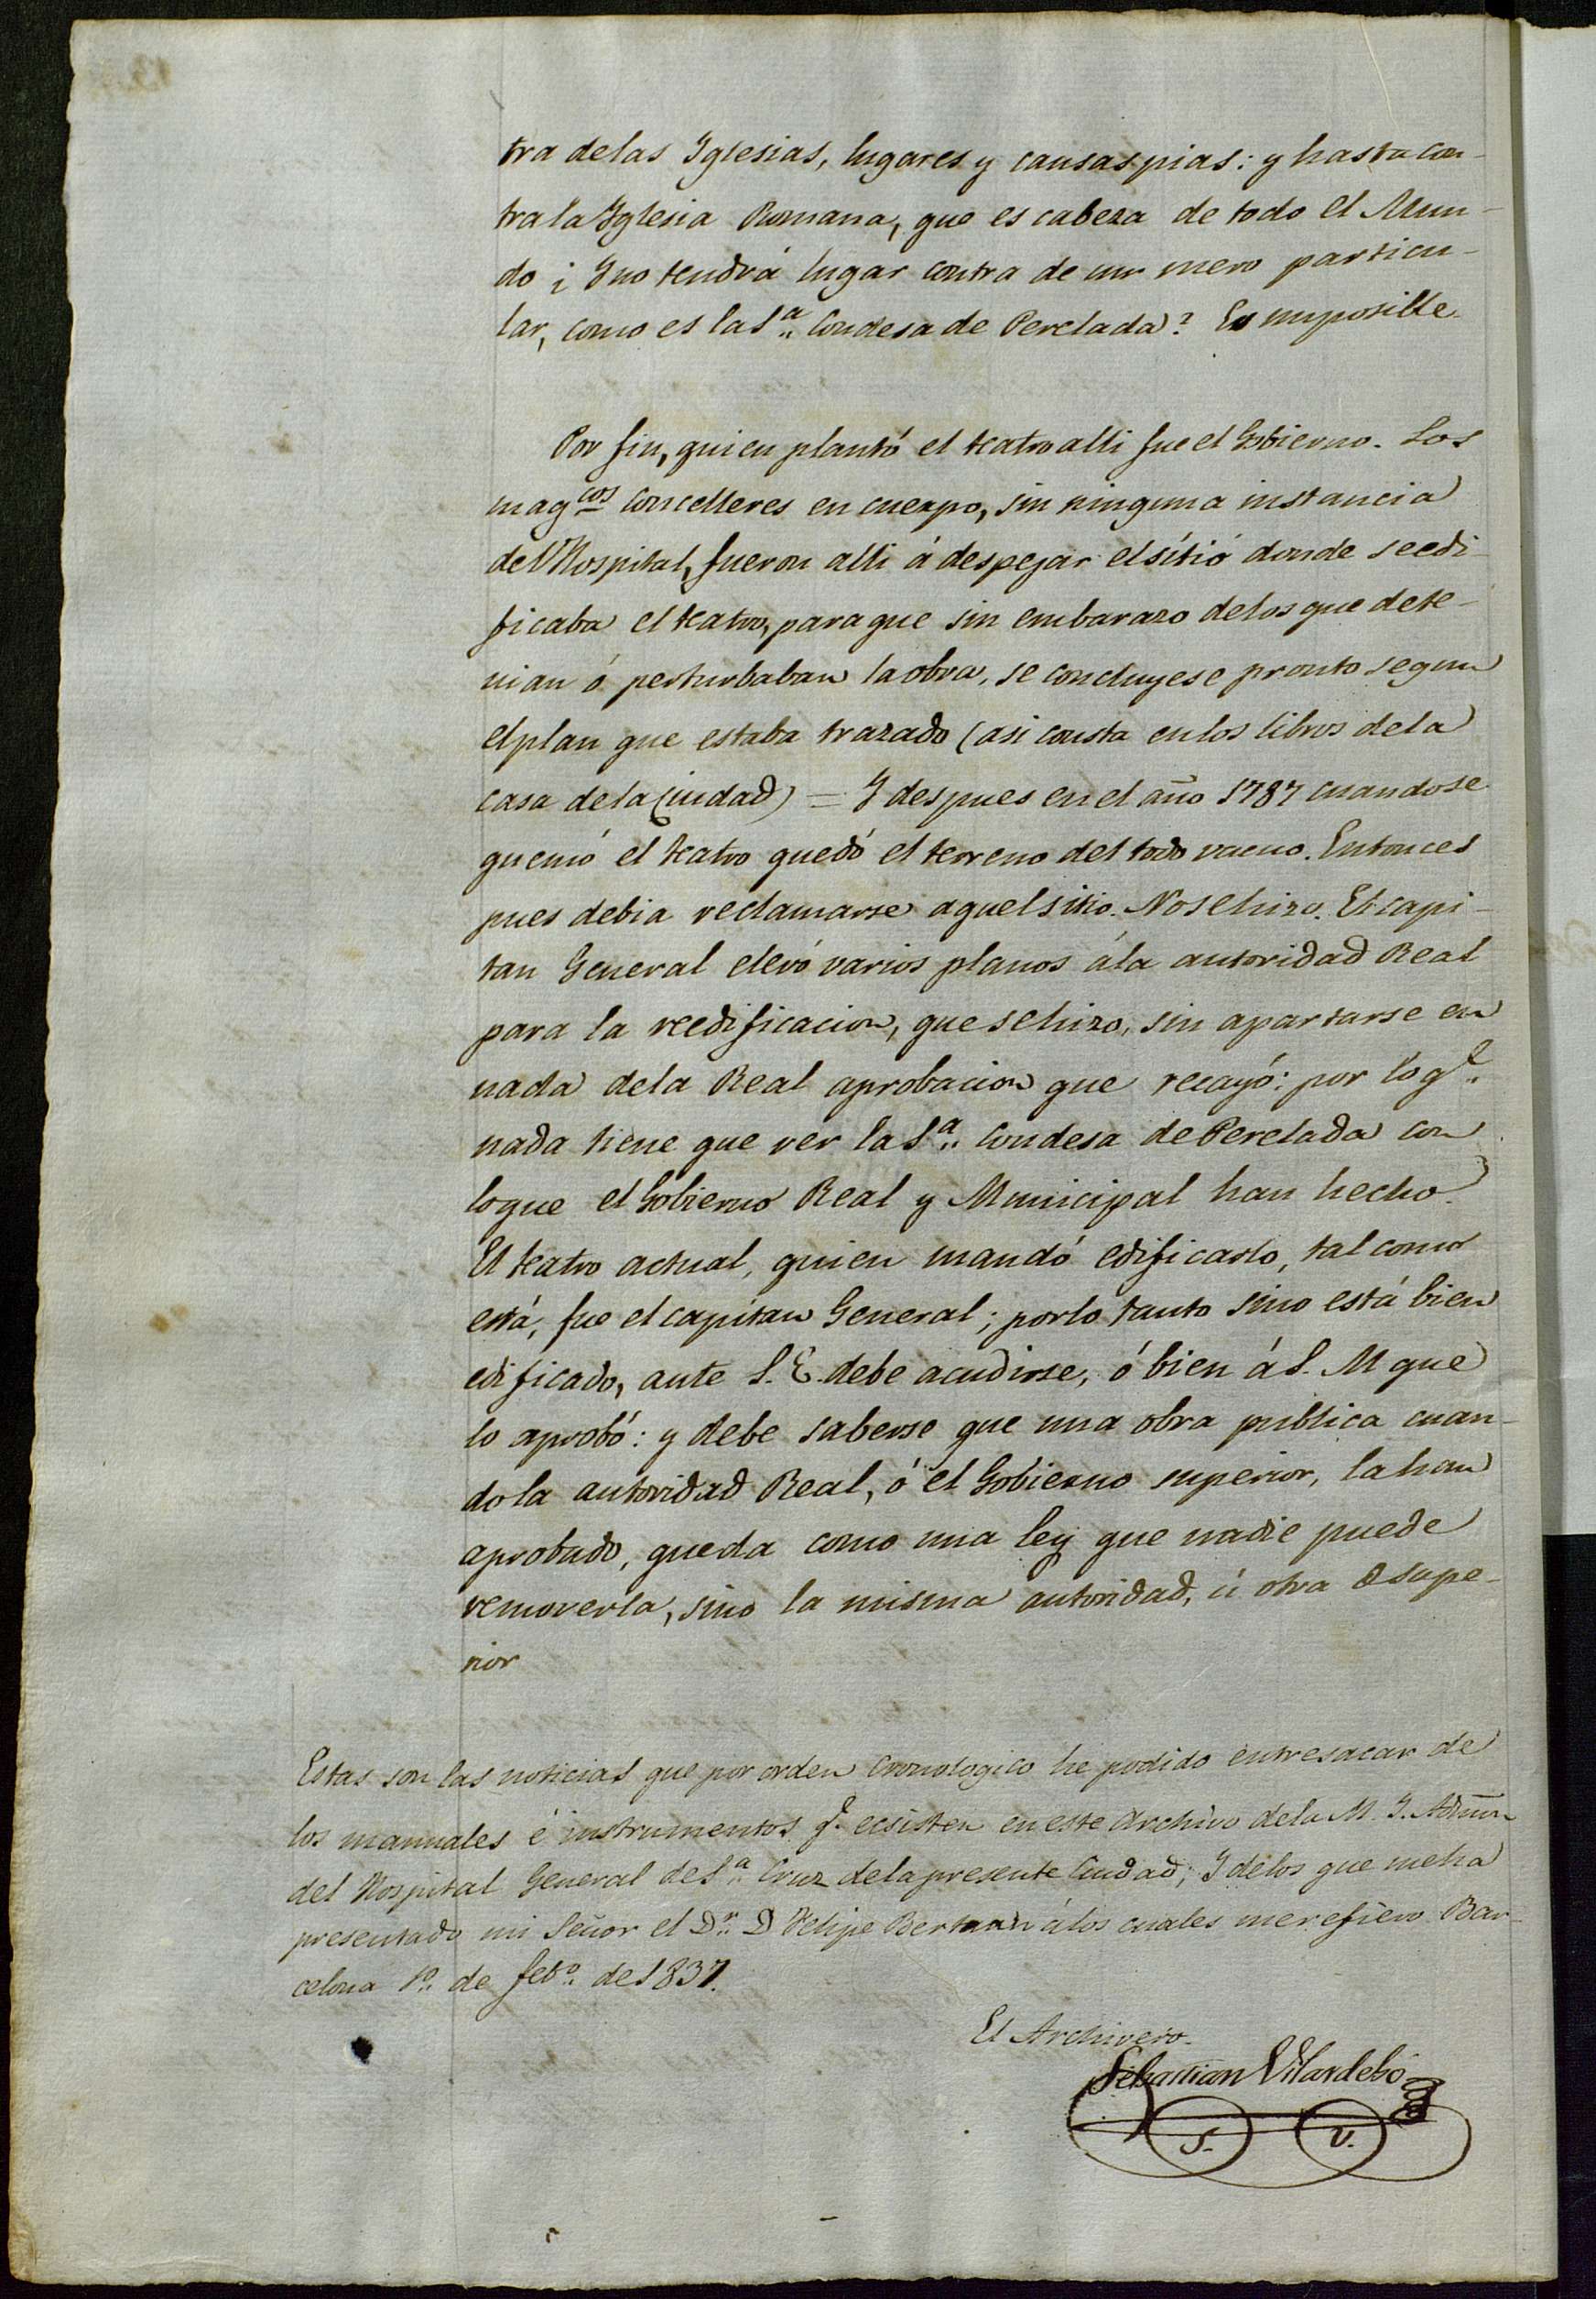 tra delas Yglesias, lugares y causas pias: y hasta con-
tra la Yglesia Romana, que es cabeza de todo el Mun-
do ¿ Y no tendrá lugar contra de un mero particu-
lar, como es la S.ª Condesa de Perelada? Es imposible.
Por fin, quien plantó el teatro alli fue el Gobierno. Los
mag.cos Concelleres en cuerpo, sin ninguna instancia
del Hospital, fueron alli á despejar el sítió donde se edi-
ficaba el teatro, para que sin embarazo delos que dete-
nian ó perturbaban la obra, se concluyese pronto segun
el plan que estaba trazado (asi consta en los libros dela
casa dela Ciudad) = Y despues en el año 1787 cuando se
quemó el teatro quedó el terreno del todo vacuo. Entonces
pues debia reclamarse aquel sitio. No se hizo. El capi-
tan General elevó varios planos ála autoridad Real
para la reedificacion, que se hizo, sin apartarse en
nada dela Real aprobacion que recayó: por lo q.e
nada tiene que ver la S.ª Condesa de Perelada con
loque el Gobierno Real y Municipal han hecho.
El teatro actual, quien mandó edificarlo, tal como
está, fue el capitan General; porlo tanto sino está bien
edificado, ante S. E. debe acudirse, ó bien á S. M que
lo aprobó: y debe saberse que una obra publica cuan-
do la autoridad Real, ó el Gobierno superior, la han
aprobado, queda como una ley que nadie puede
removerla, sino la misma autoridad, ú otra supe-
rior
Estas son las noticias que por orden cronologico he podido entresacar de
los manuales é instrumentos q.e ecsisten en este Archivo dela M. Y. Admon
del Hospital General de S.ª Cruz dela presente Ciudad; Y delos que me ha
presentado mi Señor el D.r D Felipe Bertran álos cuales me refiero. Bar-
celona 1º de feb.º de 1837.
El Archivero.
Sebastian Vilardebó
S. V.